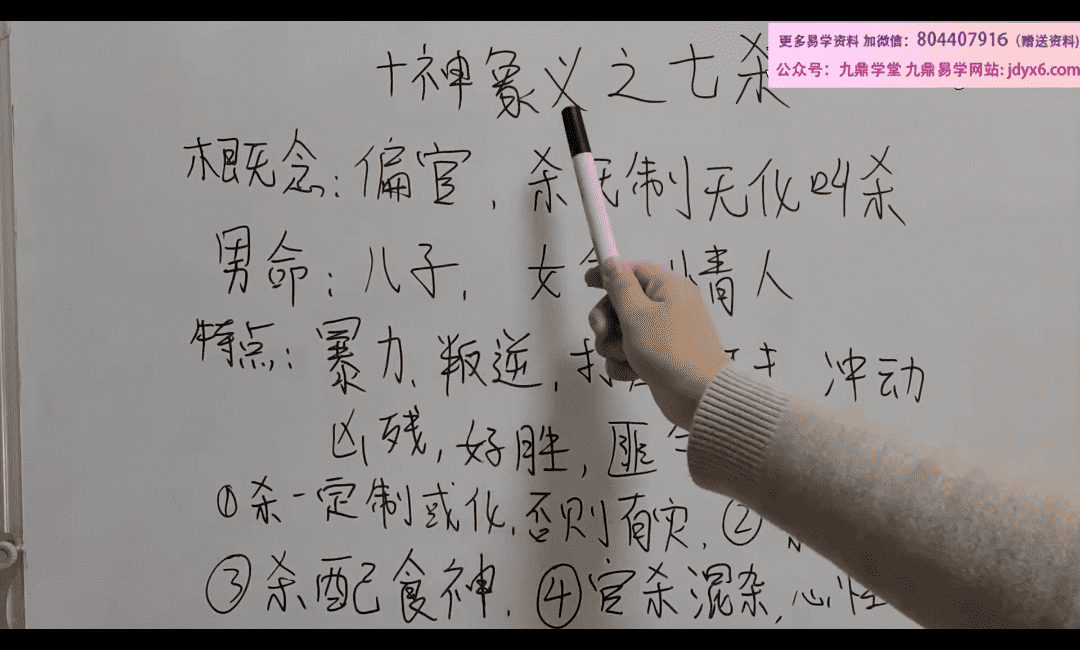 更多易学资料 加微信：804407916（赠送资料)
公众号：九鼎学堂 九鼎易学网站: jdyx6.com
十神象义之七杀
概念：偏官，杀无制无化叫杀
男命：儿子， 女 情人
特点：暴力、叛逆， 冲动
凶残，好胜，匪
①杀一定制或化，否则有灾，②
③杀配食神，④官杀混杂，心性